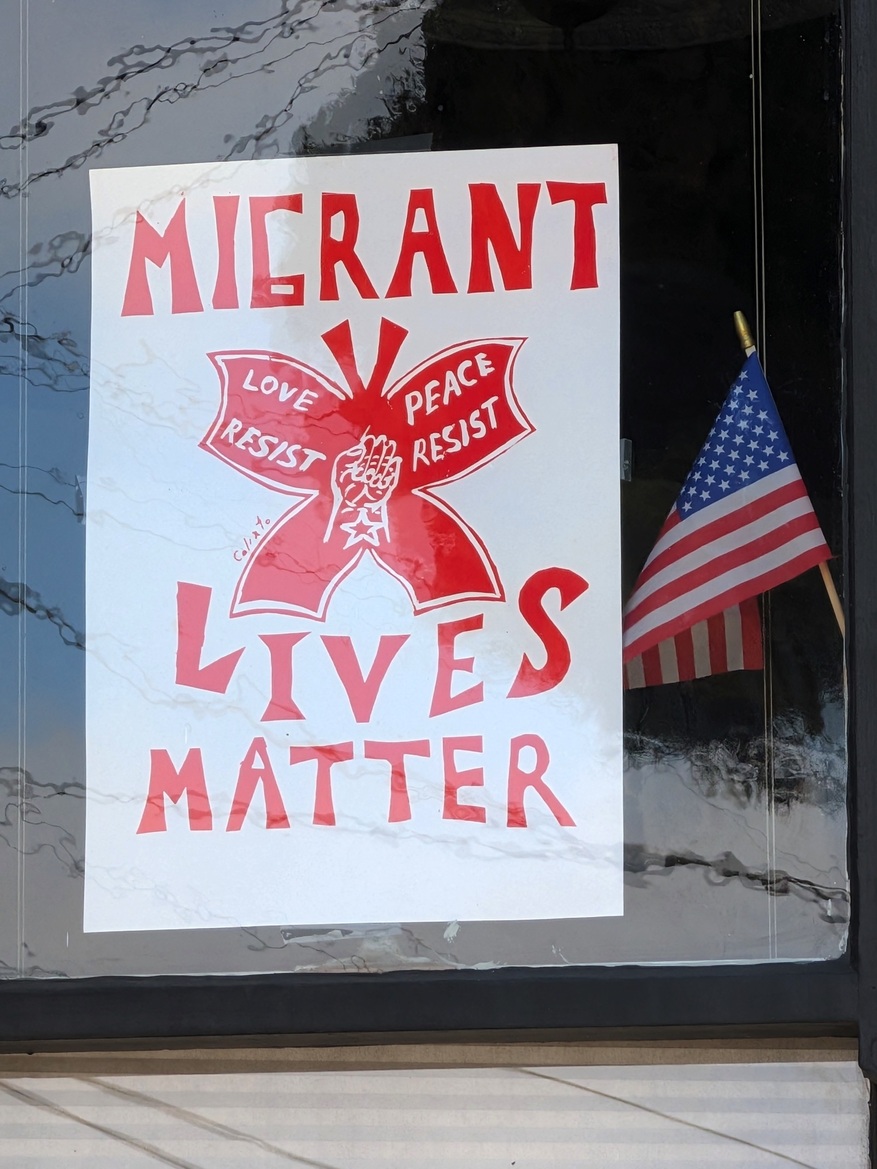 MIGRANT
LOVE
RESIST
PEACE
RESIST
Calixto
LIVES
MATTER